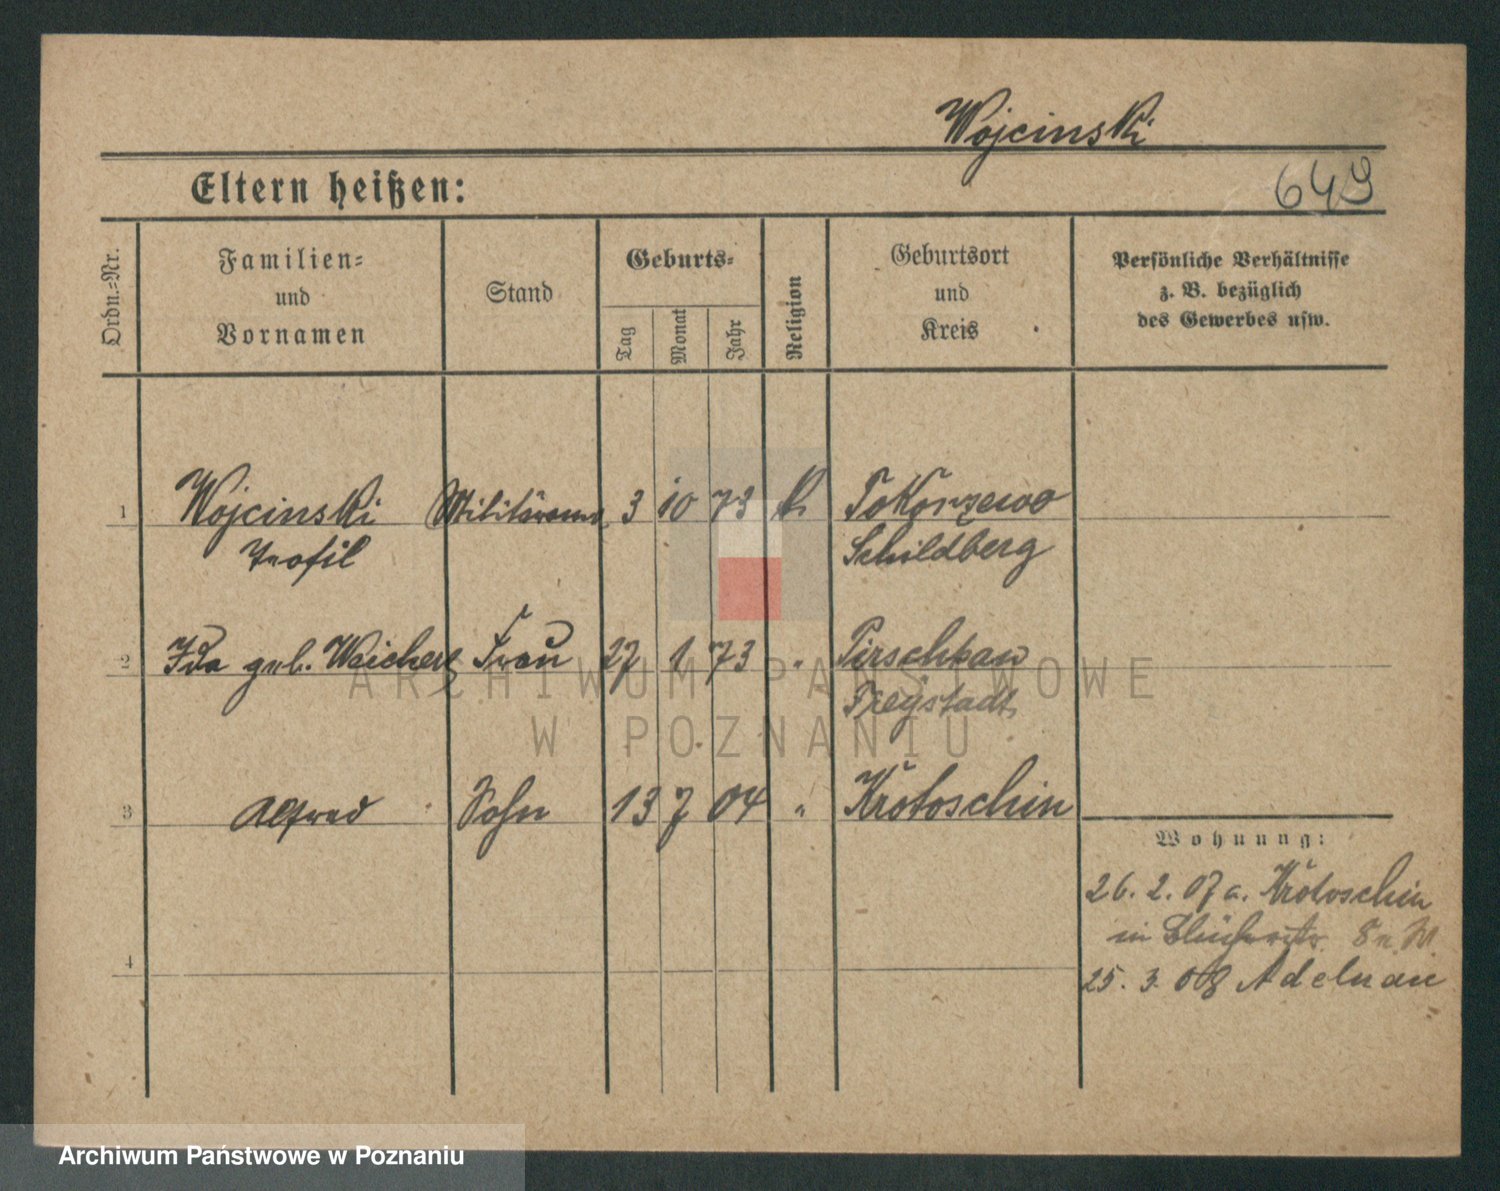 Wojcinski
Eltern heißen:
649
Ordn.-Nr.
Familien-
und
Vornamen
Stand
Geburts-
Tag
Monat
Jahr
Religion
Geburtsort
und
Kreis
Persönliche Verhältnisse
z. B. bezüglich
des Gewerbes usw.
1 Wojcinski Militäranw. 3 10 73 k. Tokorzewo
Teofil Schildberg
2 Ida geb. Weichert Frau 27 1 73 " Pirschkau
Freystadt
3 Alfred Sohn 13 7 04 " Krotoschin
Wohnung:
26. 2. 07 a. Krotoschin
in Blücherstr. 8
4
25. 3. 08 Adelnau
ARCHIWUM PAŃSTWOWE
W POZNANIU
Archiwum Państwowe w Poznaniu